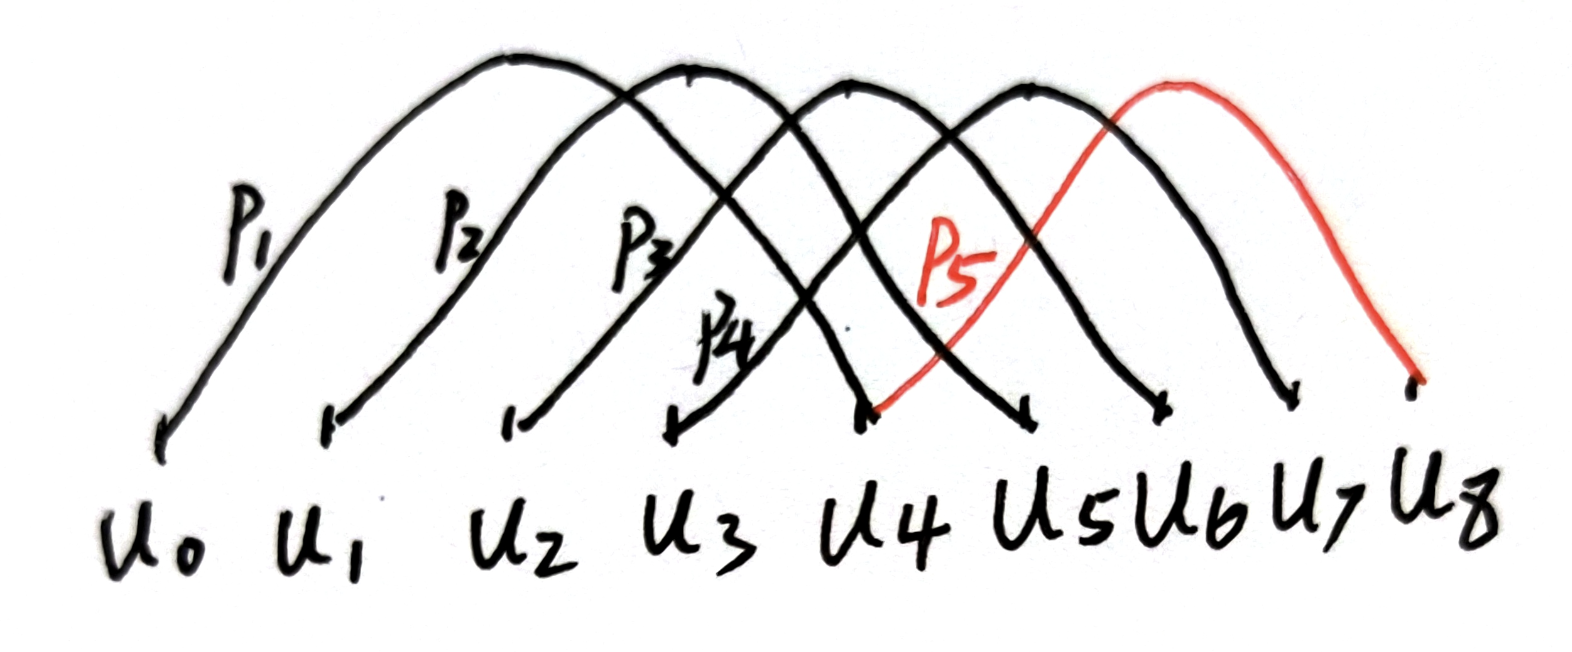 P1 P2 P3 P4 P5
u0 u1 u2 u3 u4 u5 u6 u7 u8